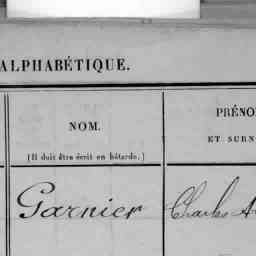 ALPHABÉTIQUE.
NOM.
(Il doit être écrit en bâtarde.)
PRÉNO
ET SURN
Garnier
Charles A